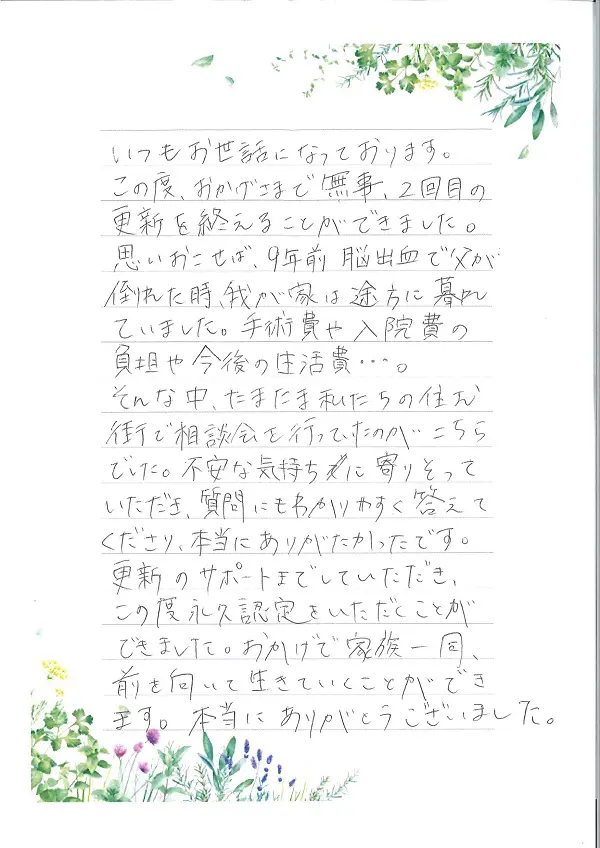 いつもお世話になっております。
この度、おかげさまで無事、2回目の
更新を終えることができました。
思いおこせば、9年前 脳出血で父が
倒れた時、我が家は途方に暮れ
ていました。手術費や入院費の
負担や今後の生活費…。
そんな中、たまたま私たちの住む
街で相談会を行っていたのがこちら
でした。不安な気持ちに寄りそって
いただき、質問にもわかりやすく答えて
くださり、本当にありがたかったです。
更新のサポートまでしていただき、
この度永久認定をいただくことが
できました。おかげで家族一同、
前を向いて生きていくことができ
ます。本当にありがとうございました。